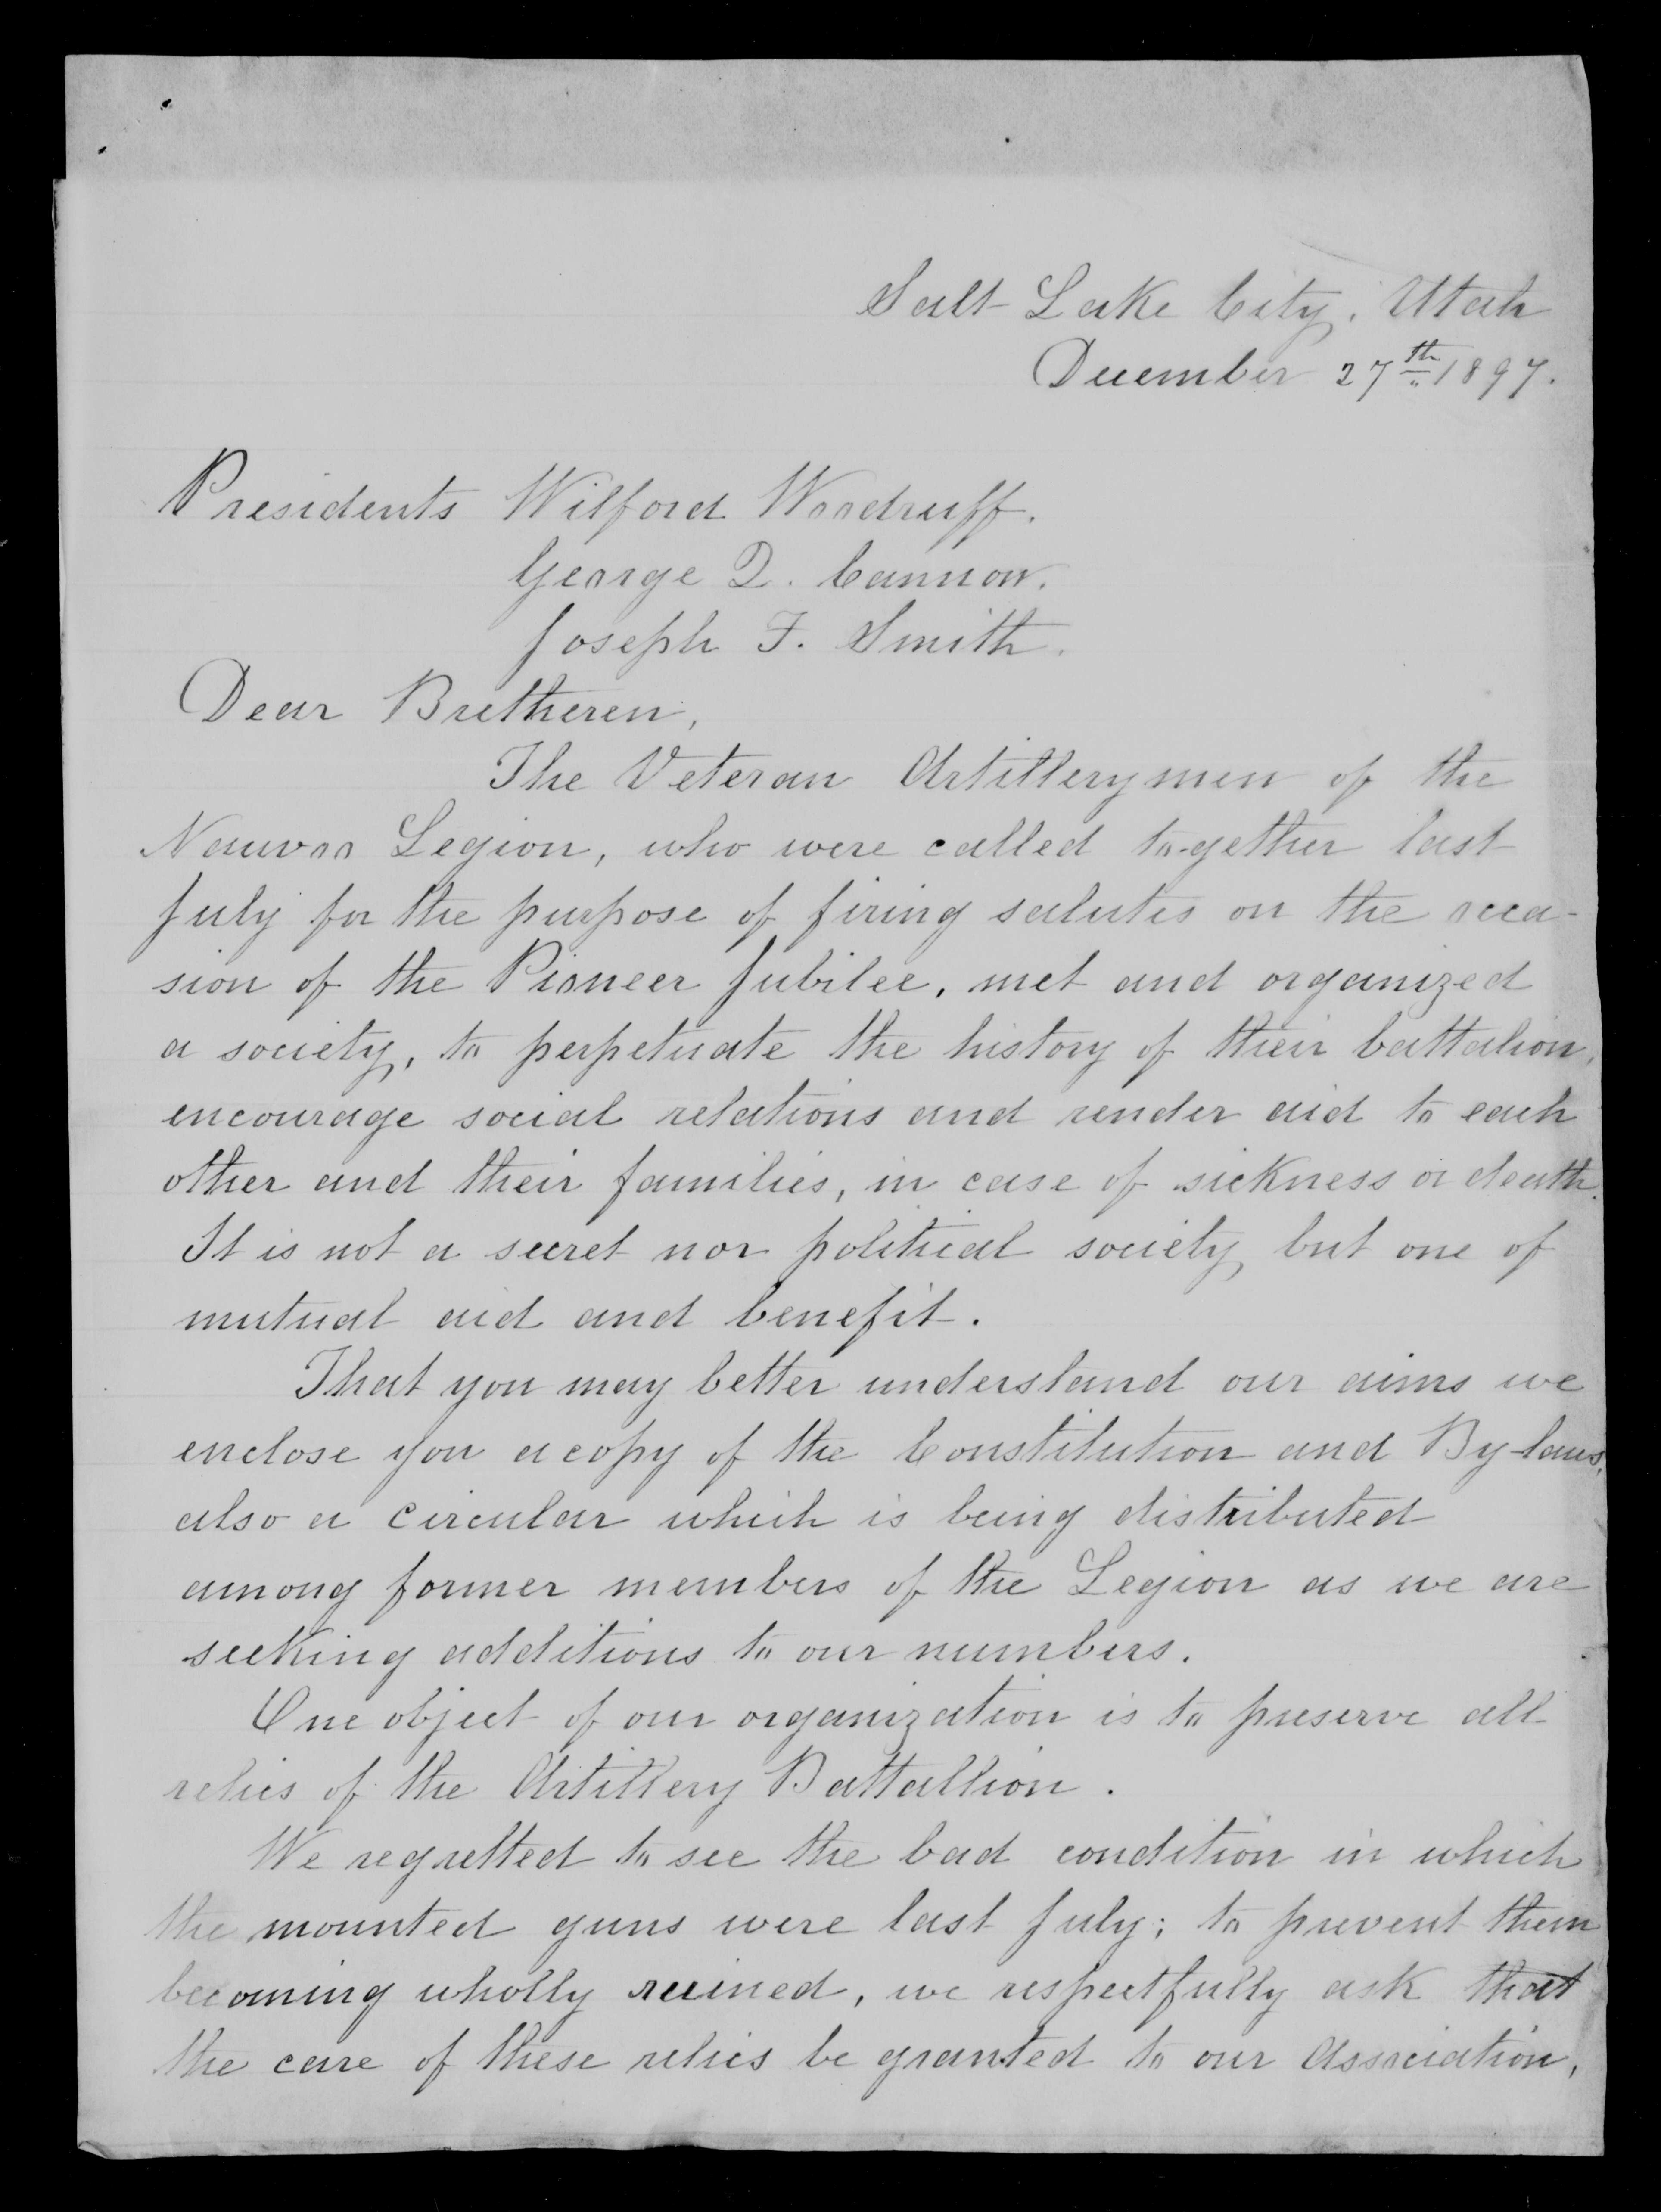 Salt Lake City, Utah
December 27th 1897.
Presidents Wilford Woodruff.
George Q. Cannon.
Joseph F. Smith.
Dear Bretheren,
The Veteran Artillerymen of the
Nauvoo Legion, who were called to-gether last
July for the purpose of firing salutes on the occa-
sion of the Pioneer Jubilee, met and organized
a society, to perpetuate the history of their battalion,
encourage social relations and render aid to each
other and their families, in case of sickness or death.
It is not a secret nor political society, but one of
mutual aid and benefit.
That you may better understand our aims we
enclose you a copy of the Constitution and By-laws,
also a circular which is being distributed
among former members of the Legion as we are
seeking additions to our numbers.
One object of our organization is to preserve all
relics of the Artillery Battallion.
We regretted to see the bad condition in which
the mounted guns were last July; to prevent them
becoming wholly ruined, we respectfully ask that
the care of these relics be granted to our Association,